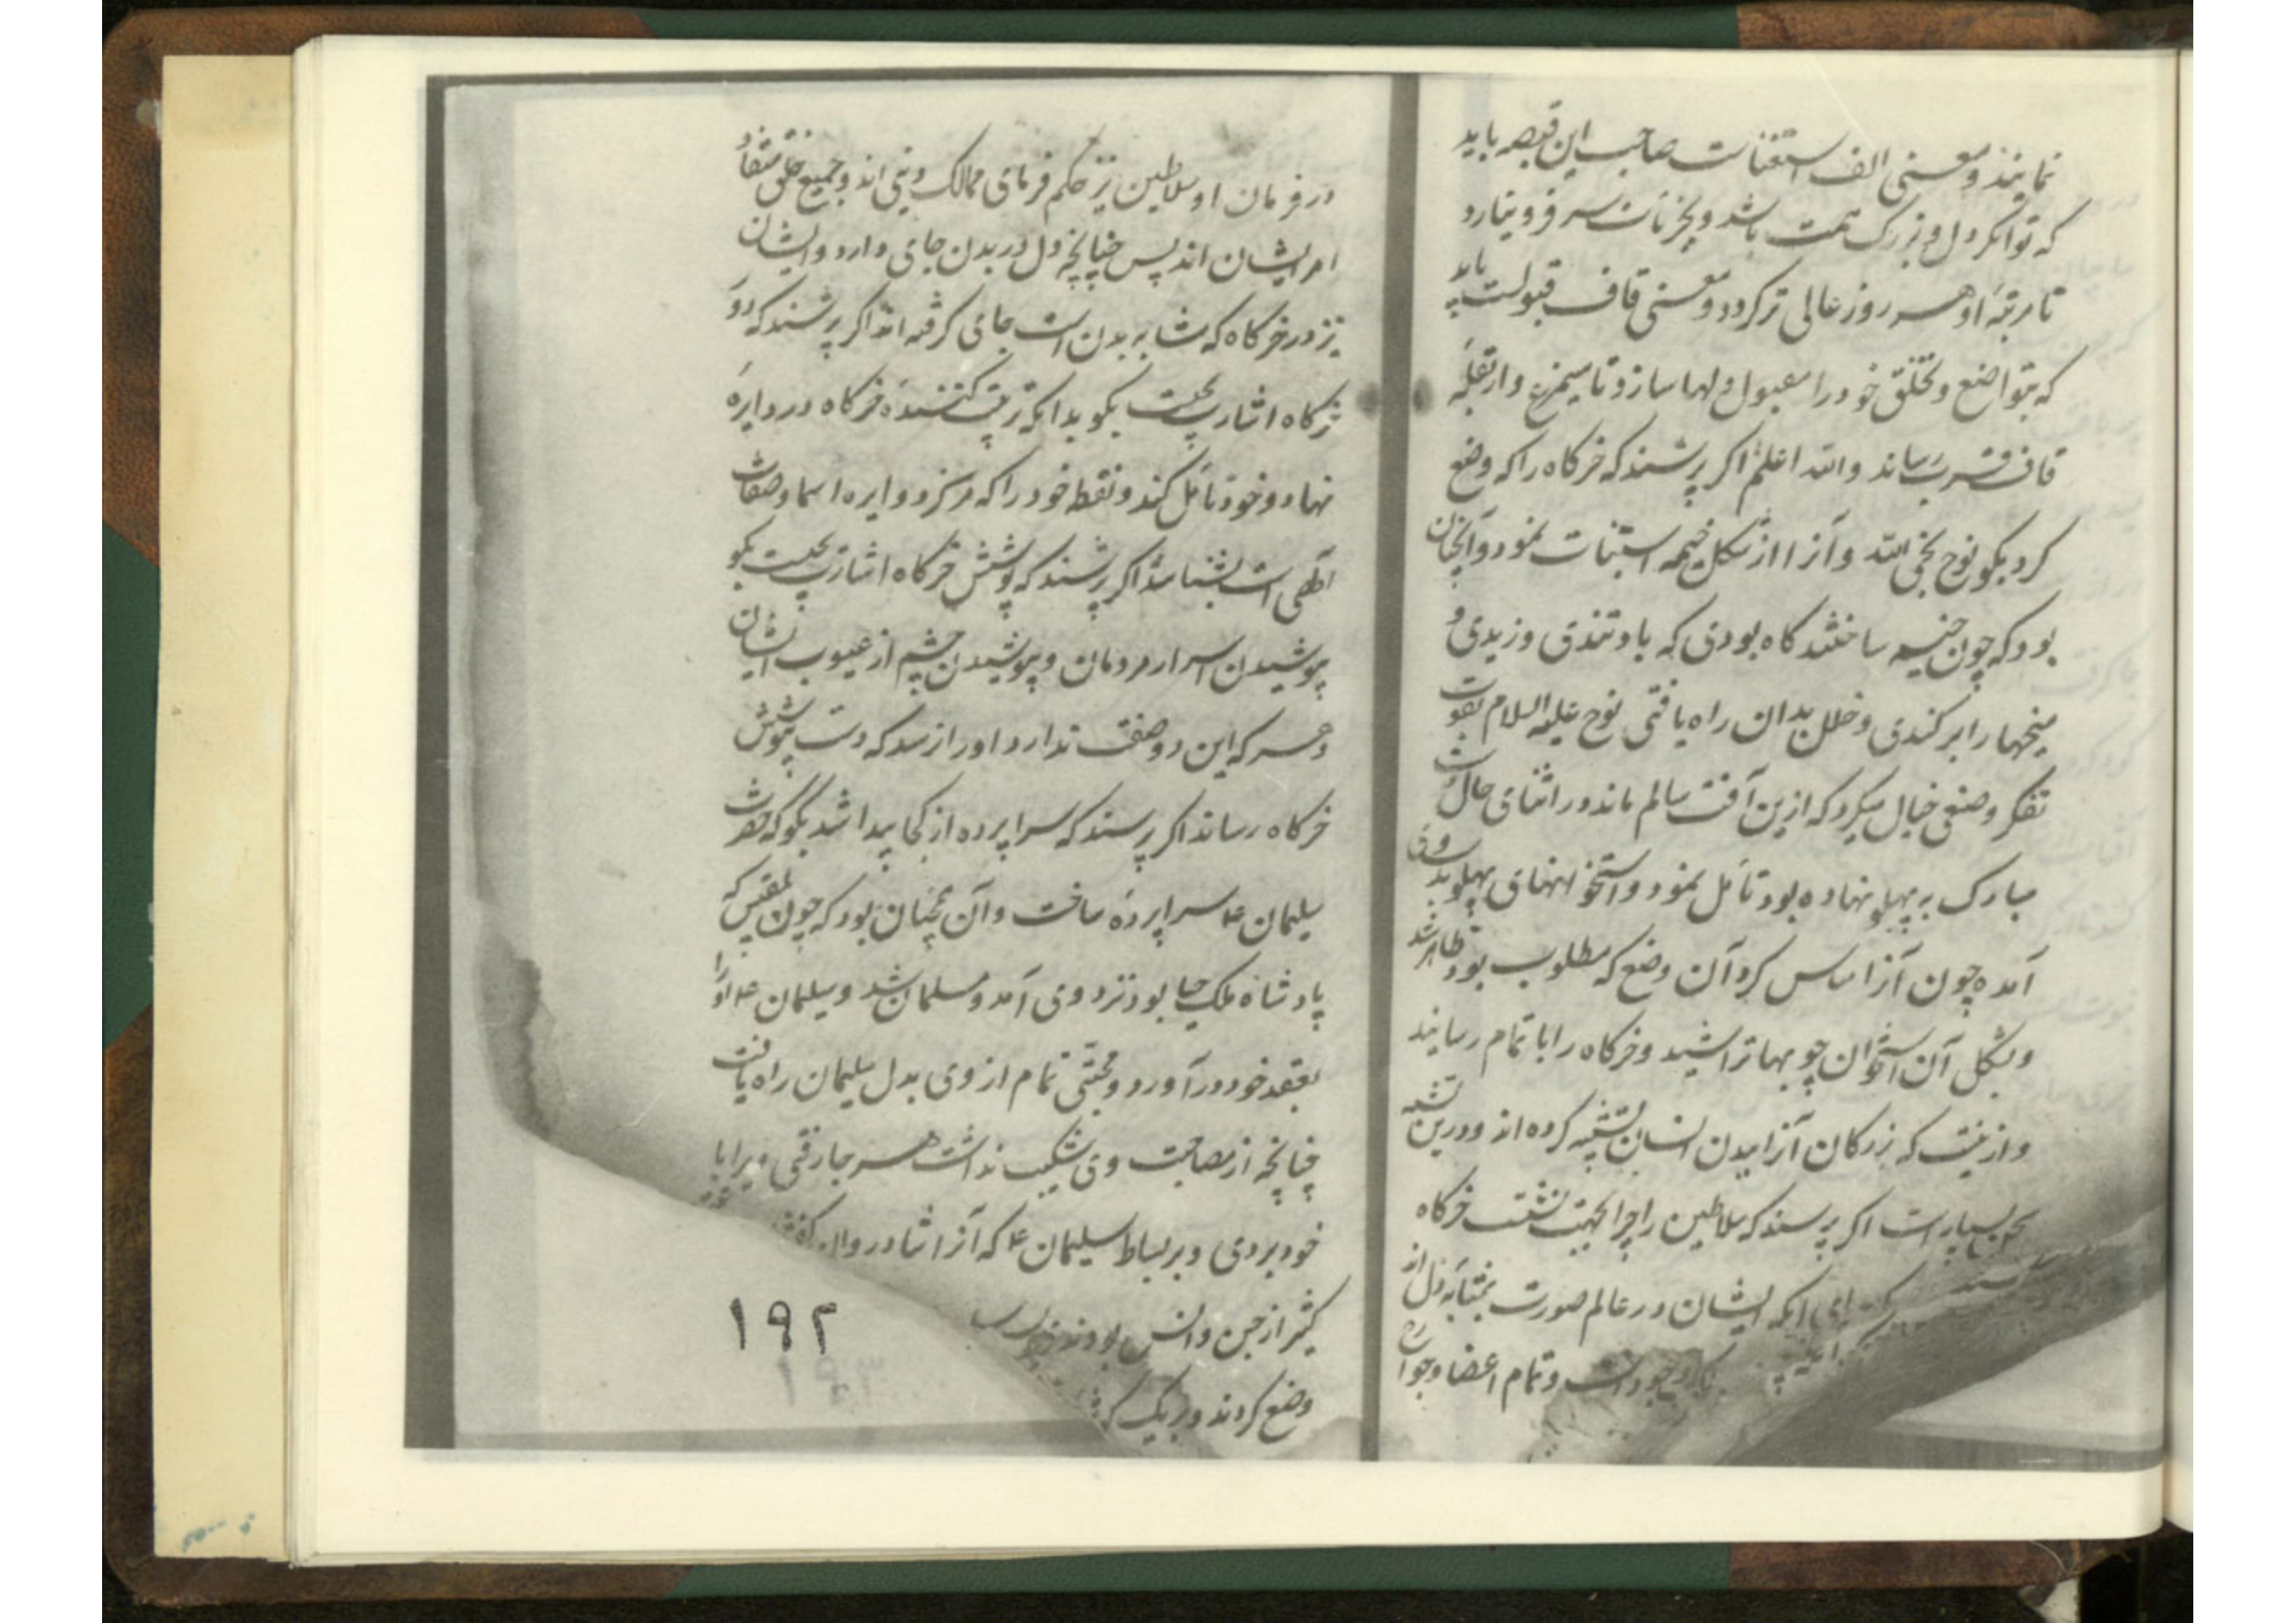 نمایند و معنی الف استغناست صاحب این قبضه باید
که توانگر دل و بزرگ همت باشد و بجزئیات سر فرو نیارد
تا مرتبهٔ او هر روز عالی تر گردد و معنی قاف قبولست باید
که بتواضع و تخلق خود را مقبول دلها سازد تا سیمرغ وار بقلهٔ
قاف قرب رساند والله اعلم اگر پرسند که خرگاه را که وضع
کرد بگو نوح نجی الله و آنرا از شکل خیمه استنباط نمود و آنچنان
بود که چون خیمه ساختند گاه بودی که باد تندی وزیدی و
میخها را بر کندی و خلل بدان راه یافتی نوح علیه السلام بقوت
تفکر وضعی خیال میکرد که ازین آفت سالم ماند در اثنای حال دست
مبارک به پهلو نهاده بود تأمل نمود و استخوانهای پهلو
آمده چون آنرا مساس کرد آن وضع که مطلوب بود ظاهر شد
و بشکل آن استخوان چوبها تراشید و خرگاه را باتمام رسانید
و ازینست که بزرگان آنرا ببدن انسان تشبیه کرده اند و درین تشبیه
بسیارست اگر پرسند که سلاطین را چرا بجهت نشست خرگاه
برای آنکه ایشان در عالم صورت بمثابه دل اند
وجود است و تمام اعضا و جوارح
در فرمان او سلاطین نیز حکم فرمای ممالک دنیی اند و جمیع خلق منقاد
امر ایشان اند پس چنانچه دل در بدن جای دارد و ایشان
نیز در خرگاه که مشابه بدن است جای گرفته اند اگر پرسند که دور
خرگاه اشارت بچیست بگو بدانکه ترتیب کنندهٔ خرگاه در دایرهٔ
نهاد وخود تأمل کند و نقطه خود را که مرکز دوایره اسما و صفات
آلهی است بشناسد اگر پرسند که پوشش خرگاه اشارت بچیست بگو
پوشیدن اسرار مردمان و پوشیدن چشم از عیوب ایشان
و هر که این دو صفت ندارد او را نرسد که دست بپوشش
خرگاه رساند اگر پرسند که سراپرده از کجا پیدا شد بگو که حضرت
سلیمان ع سراپرده ساخت و آن چنان بود که چون بلقیس که
پادشاه ملک سبا بود نزد وی آمد و مسلمان شد و سلیمان ع او را
بعقد خود در آورد و محبتی تمام از وی بدل سلیمان راه یافت
چنانچه از مصاحبت وی شکیب نداشت هر جا رفتی ویرا با
خود بردی و بر بساط سلیمان ع که آنرا شادروان گفتندی
کثیر از جن و انس بودند
وضع کردند و بر یک
۱۹۲
۱۹۳